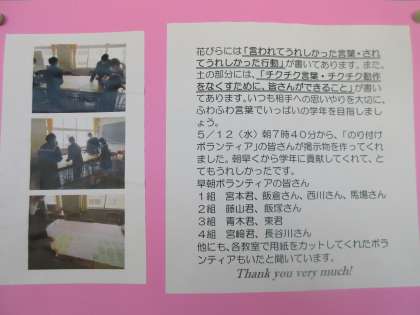 花びらには「言われてうれしかった言葉・され
てうれしかった行動」が書いてあります。また、
土の部分には、「チクチク言葉・チクチク動作
をなくすために、皆さんができること」が書い
てあります。いつも相手への思いやりを大切に、
ふわふわ言葉でいっぱいの学年を目指しまし
ょう。
5/12(水)朝7時40分から、「のり付け
ボランティア」の皆さんが掲示物を作ってくれ
ました。朝早くから学年に貢献してくれて、と
てもうれしかったです。
早朝ボランティアの皆さん
1組　宮本君、飯倉さん、西川さん、馬場さん
2組　藤山君、飯塚さん
3組　青木君、東君
4組　宮﨑君、長谷川さん
他にも、各教室で用紙をカットしてくれたボラ
ンティアもいたと聞いています。
Thank you very much!